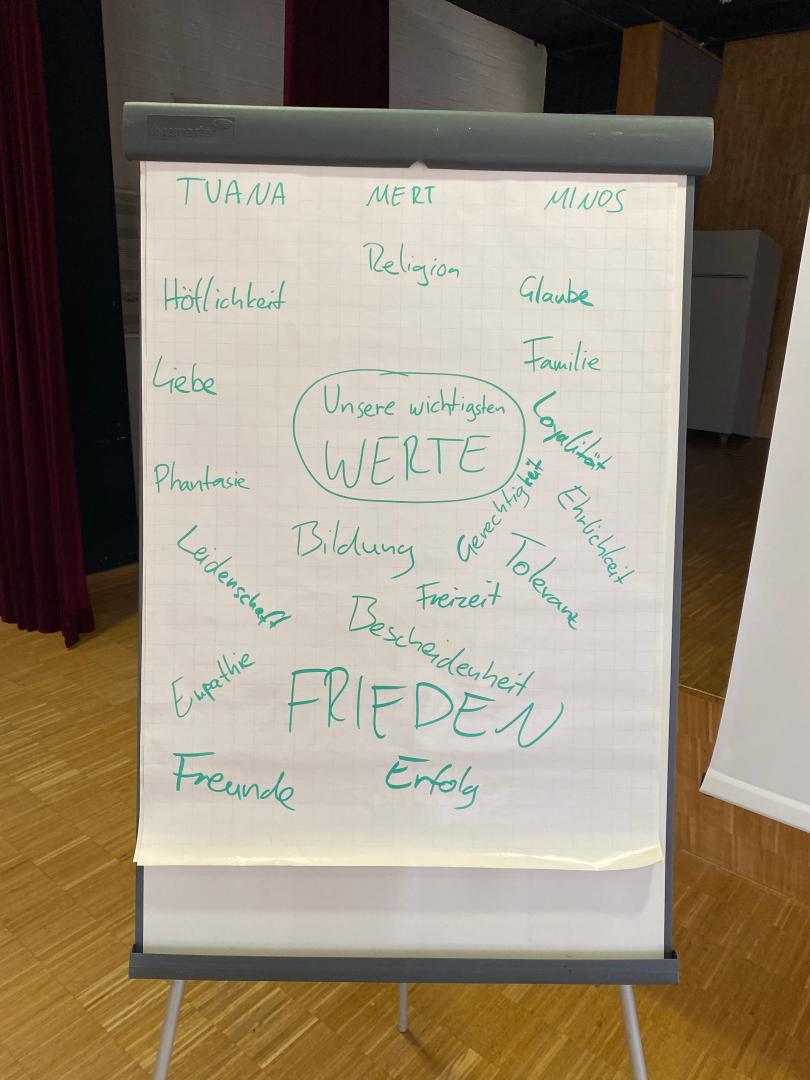 TUANA MERT MINOS
Religion
Höflichkeit
Glaube
Familie
Liebe
Unsere wichtigsten
WERTE
Loyalität
Phantasie
Gerechtigkeit
Ehrlichkeit
Bildung
Toleranz
Leidenschaft
Freizeit
Bescheidenheit
Empathie
FRIEDEN
Freunde
Erfolg